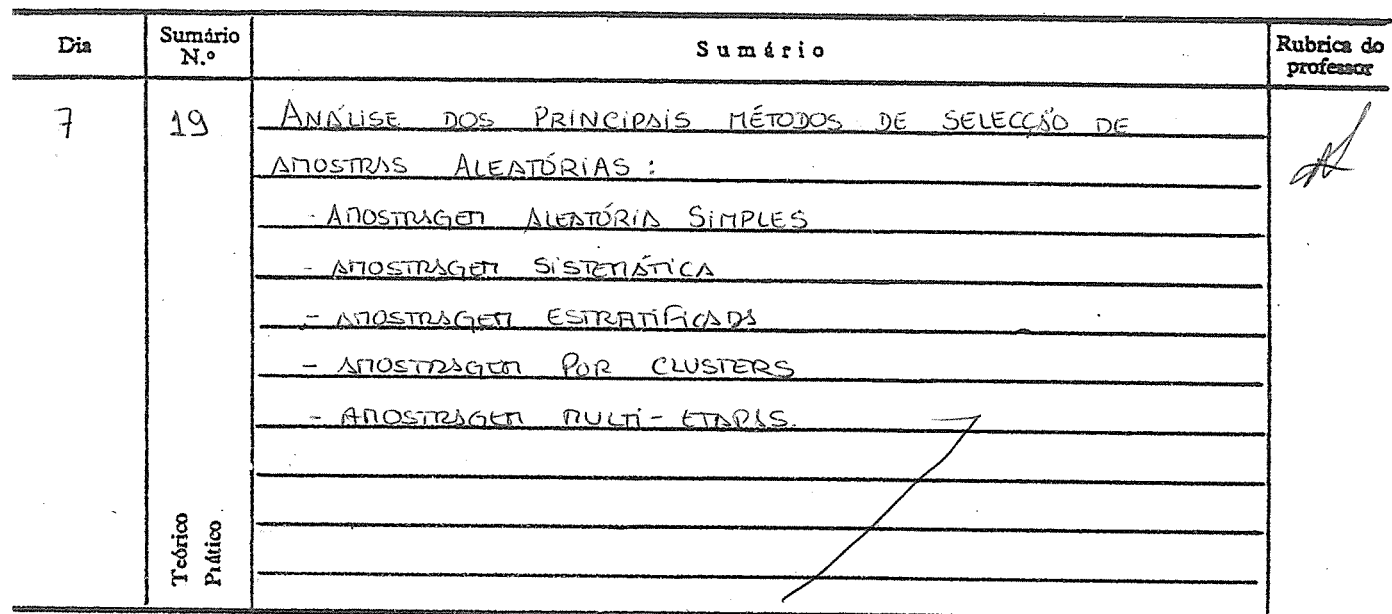 Dia Sumário N.º Sumário Rubrica do professor
7 19 ANÁLISE DOS PRINCIPAIS MÉTODOS DE SELECÇÃO DE
AMOSTRAS ALEATÓRIAS :
- AMOSTRAGEM ALEATÓRIA SIMPLES
- AMOSTRAGEM SISTEMÁTICA
- AMOSTRAGEM ESTRATIFICADA
- AMOSTRAGEM POR CLUSTERS
- AMOSTRAGEM MULTI-ETAPAS.
Teórico
Prático